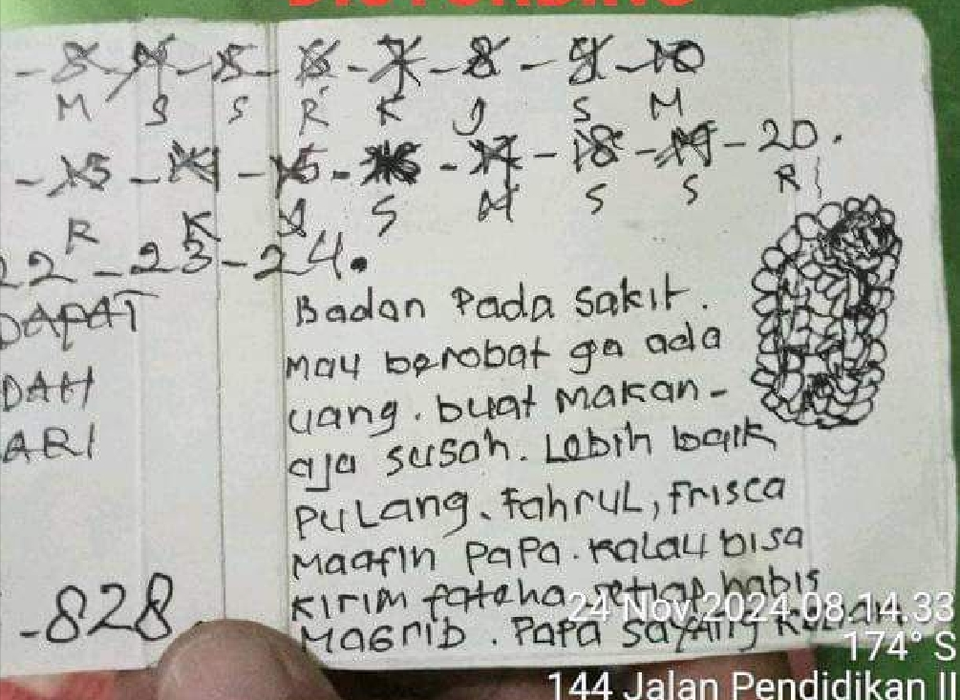 - 8 - 4 - 5 - 6 - 7 - 8 - 9 - 10
M S S R K J S M
- 13 - 14 - 15 - 16 - 17 - 18 - 19 - 20.
R K J S M S S R
22 - 23 - 24.
DAPAT
DAH
ARI
Badan Pada sakit.
mau berobat ga ada
uang. buat makan -
aja susah. Lebih baik
PuLang. Fahrul, Frisca
Maafin PaPa. Kalau bisa
Kirim fateha setiap habis
MaGrib. PaPa sayang
-828
24 Nov 2024 08.14.33
174° S
144 Jalan Pendidikan II